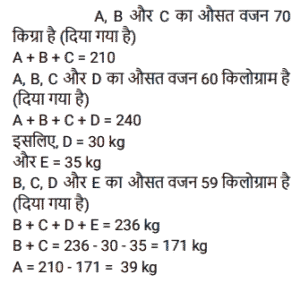 A, B और C का औसत वजन 70
किग्रा है (दिया गया है)
A + B + C = 210
A, B, C और D का औसत वजन 60 किलोग्राम है
(दिया गया है)
A + B + C + D = 240
इसलिए, D = 30 kg
और E = 35 kg
B, C, D और E का औसत वजन 59 किलोग्राम है
(दिया गया है)
B + C + D + E = 236 kg
B + C = 236 - 30 - 35 = 171 kg
A = 210 - 171 = 39 kg